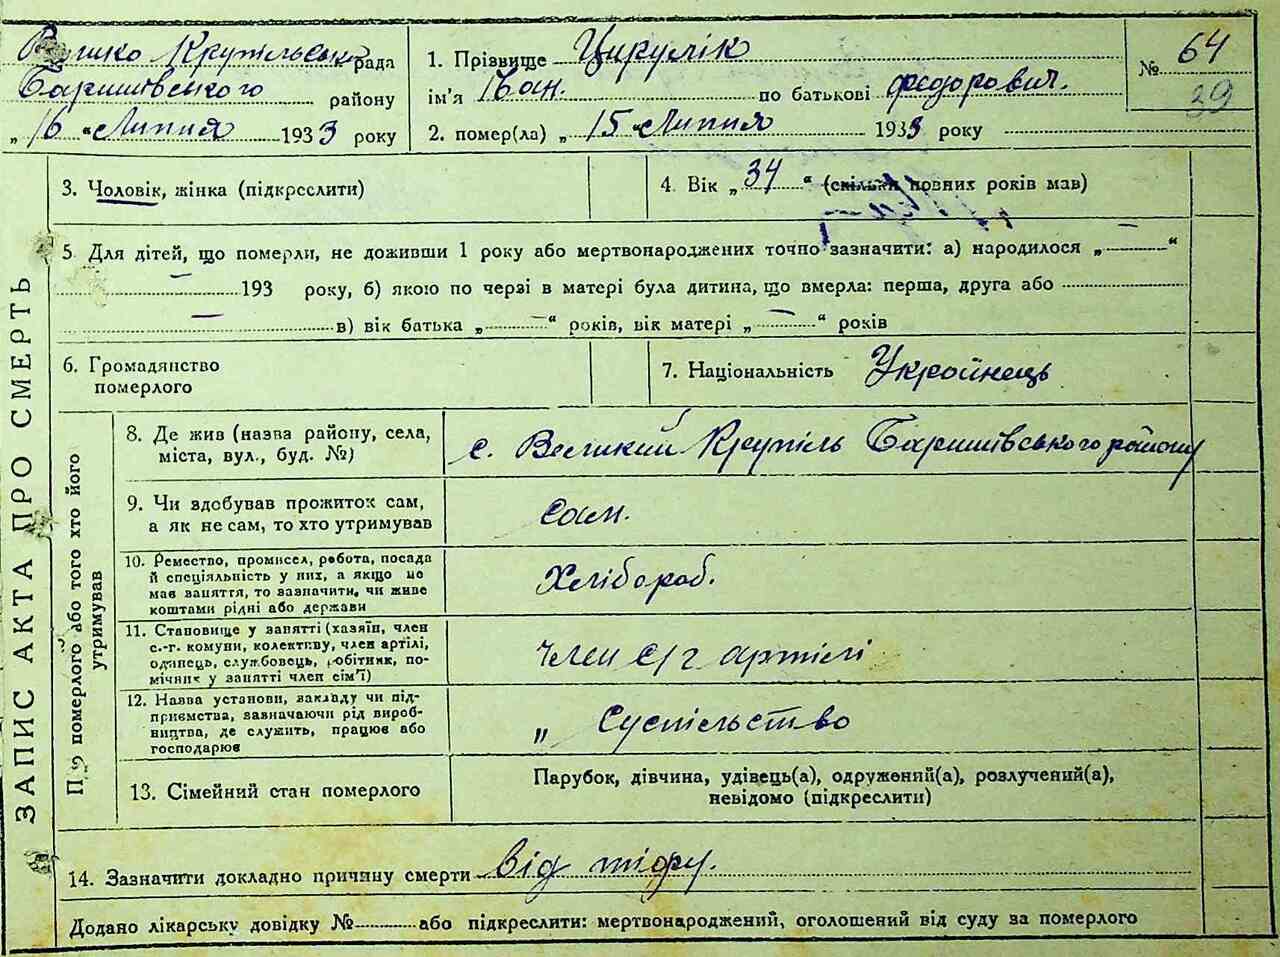 Велико Крупільська рада
Баришівського району
„ 16 “ Липня 1933 року
1. Прізвище Цирулік
ім'я Іван. по батькові Федорович.
2. помер(ла) „ 15 “ Липня 1933 року
№ 64
39
ЗАПИС АКТА ПРО СМЕРТЬ
3. Чоловік, жінка (підкреслити)
4. Вік „ 34 “ (скільки повних років мав)
5. Для дітей, що померли, не доживши 1 року або мертвонароджених точно зазначити: а) народилося „ — “
— 193 року, б) якою по черзі в матері була дитина, що вмерла: перша, друга або
— в) вік батька „ — “ років, вік матері „ — “ років
6. Громадянство
померлого
7. Національність Украйнець
Про померлого або того хто його
утримував
8. Де жив (назва району, села,
міста, вул., буд. №)
с. Великий Крупіль Баришівського району
9. Чи здобував прожиток сам,
а як не сам, то хто утримував
сам.
10. Ремество, промисел, робота, посада
й спеціяльність у них, а якщо не
мав заняття, то зазначити, чи живе
коштами рідні або держави
Хлібороб.
11. Становище у занятті (хазяїн, член
с.-г. комуни, колективу, член артілі,
одинець, службовець, робітник, по-
мічник у занятті член сім'ї)
член с/г артілі
12. Назва установи, закладу чи під-
приємства, зазначаючи рід вироб-
ництва, де служить, працює або
господарює
„ Суспільство
13. Сімейний стан померлого
Парубок, дівчина, удівець(а), одружений(а), розлучений(а),
невідомо (підкреслити)
14. Зазначити докладно причину смерти від
Додано лікарську довідку № або підкреслити: мертвонароджений, оголошений від суду за померлого